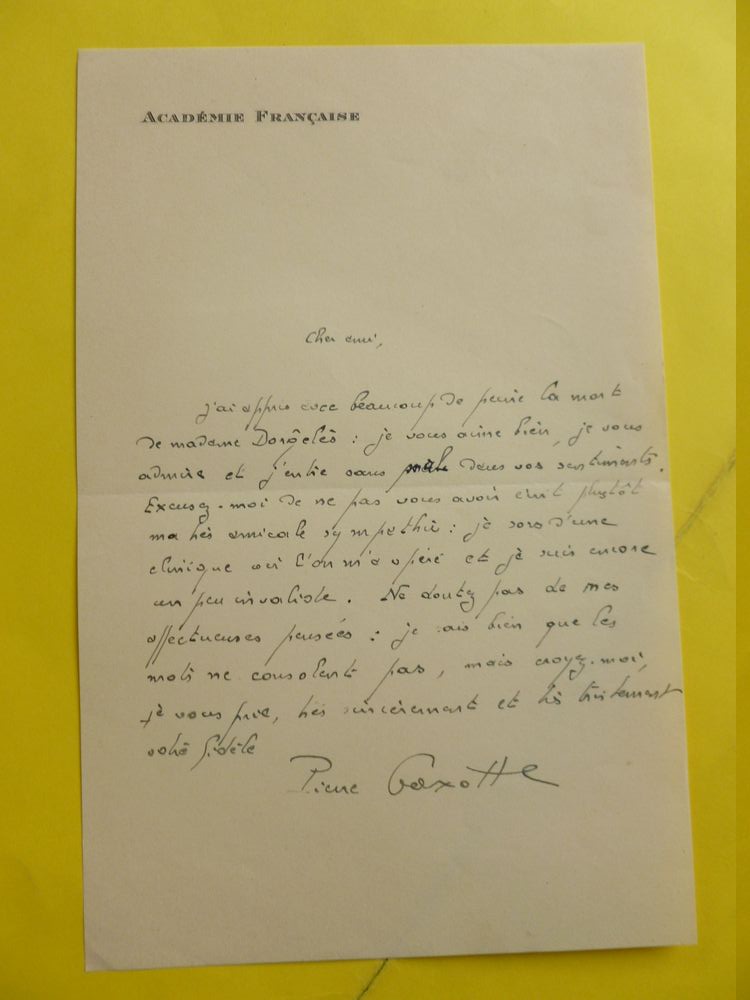 ACADÉMIE FRANÇAISE
Cher ami,
j'ai appris avec beaucoup de peine la mort
de madame Dorgelès : je vous aime bien, je vous
admire et j'entre sans peine dans vos sentiments.
Excusez-moi de ne pas vous avoir écrit plutôt
ma très amicale sympathie : je sors d'une
clinique où l'on m'a opéré et je suis encore
un peu invalide. Ne doutez pas de mes
affectueuses pensées : je sais bien que les
mots ne consolent pas, mais croyez-moi,
je vous prie, très sincèrement et très tristement
votre fidèle
Pierre Gaxotte